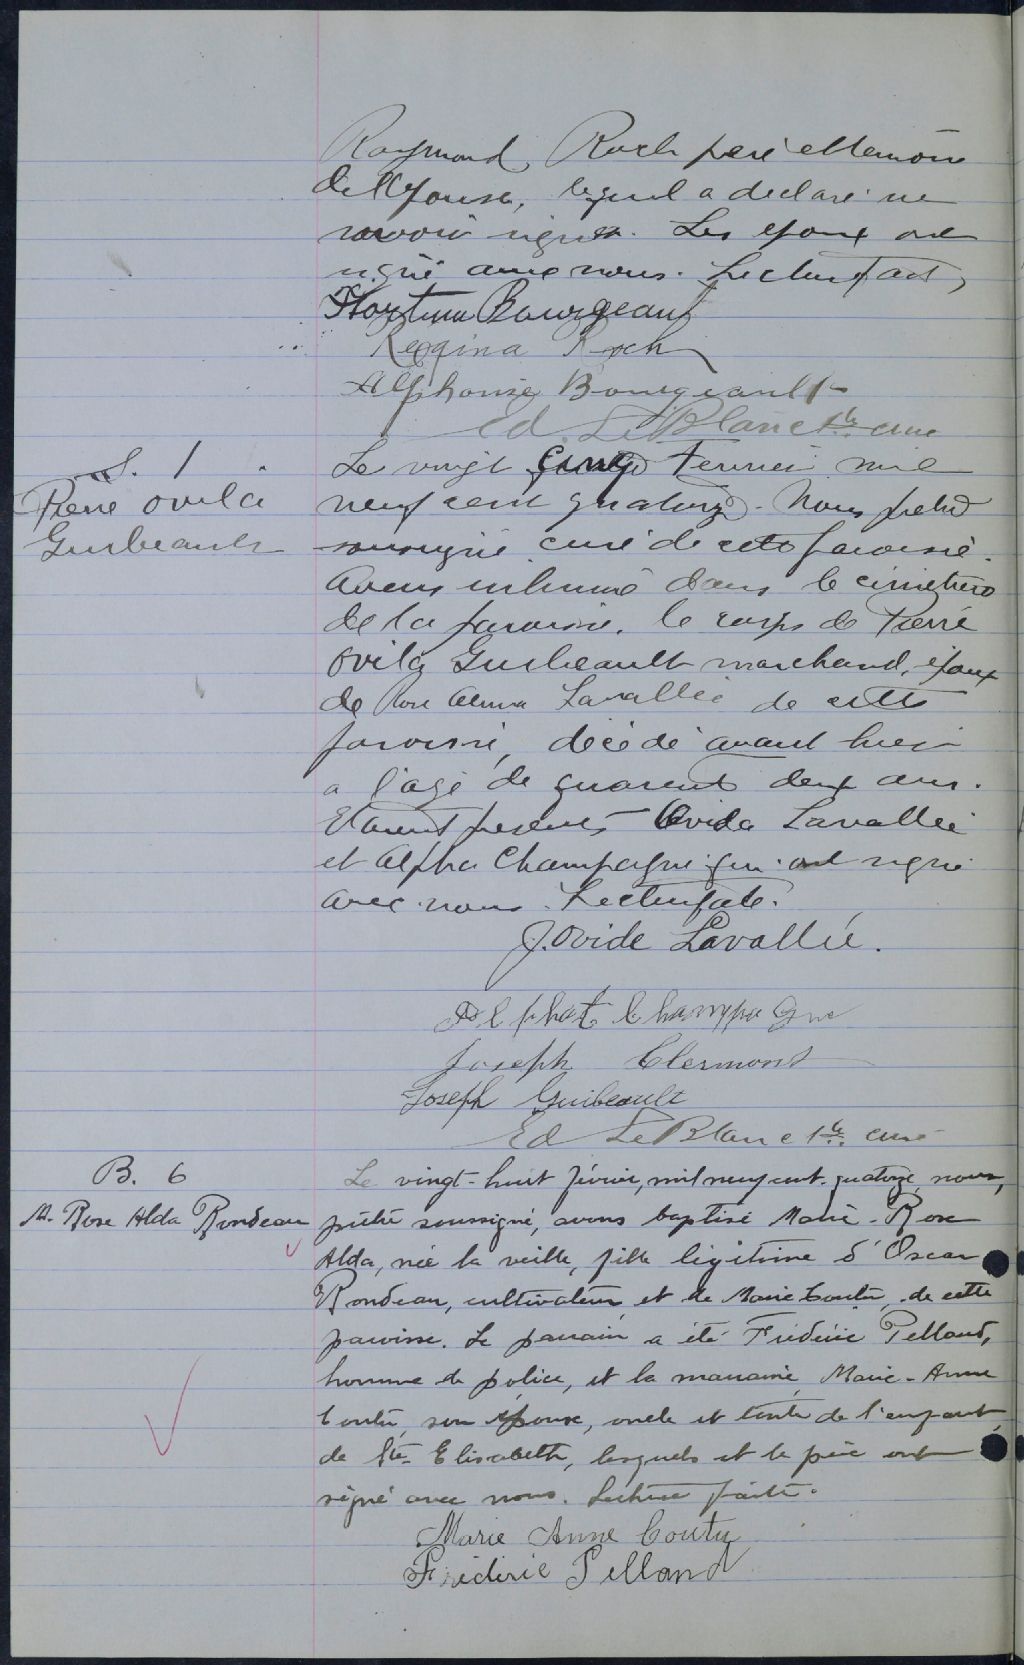 Raymond Roch père et temoin
de l'épouse, lequel a declaré ne
savoir signer. Les époux ont
signé avec nous. Lecture faite,
Bourgeault
Regina Roch
Alphonse Bourgeault
Ed LeBlanc ptre curé
S. 1
Pierre Ovila
Guilbeault
Le vingt cinq Fevrier mil
neuf cent quatorze. Nous pretre
soussigné curé de cette paroisse.
Avons inhumé dans le cimetiere
de la paroisse, le corps de Pierre
Ovila Guilbeault marchand, époux
de Rose Alma Lavallée de cette
paroisse, décédé avant hier
a l'age de quarante deux ans.
Etaient presents Ovide Lavallée
et Alpha Champagne qui ont signé
avec nous. Lecture faite.
J. Ovide Lavallée.
Champagne
Joseph Clermont
Joseph Guibeault
Ed LeBlanc ptre curé
B. 6
M. Rose Alda Rondeau
Le vingt-huit février, mil neuf cent quatorze, nous,
prêtre soussigné, avons baptisé Marie-Rose
Alda, née la veille, fille légitime d'Oscar
Rondeau, cultivateur et de Marie Coutu, de cette
paroisse. Le parrain a été Frédéric Pelland,
homme de police, et la marraine, Marie-Anne
Coutu, son épouse, oncle et tante de l'enfant,
de Ste Elisabeth, lesquels et le père ont
signé avec nous. Lecture faite.
Marie Anne Coutu
Fréderic Pelland